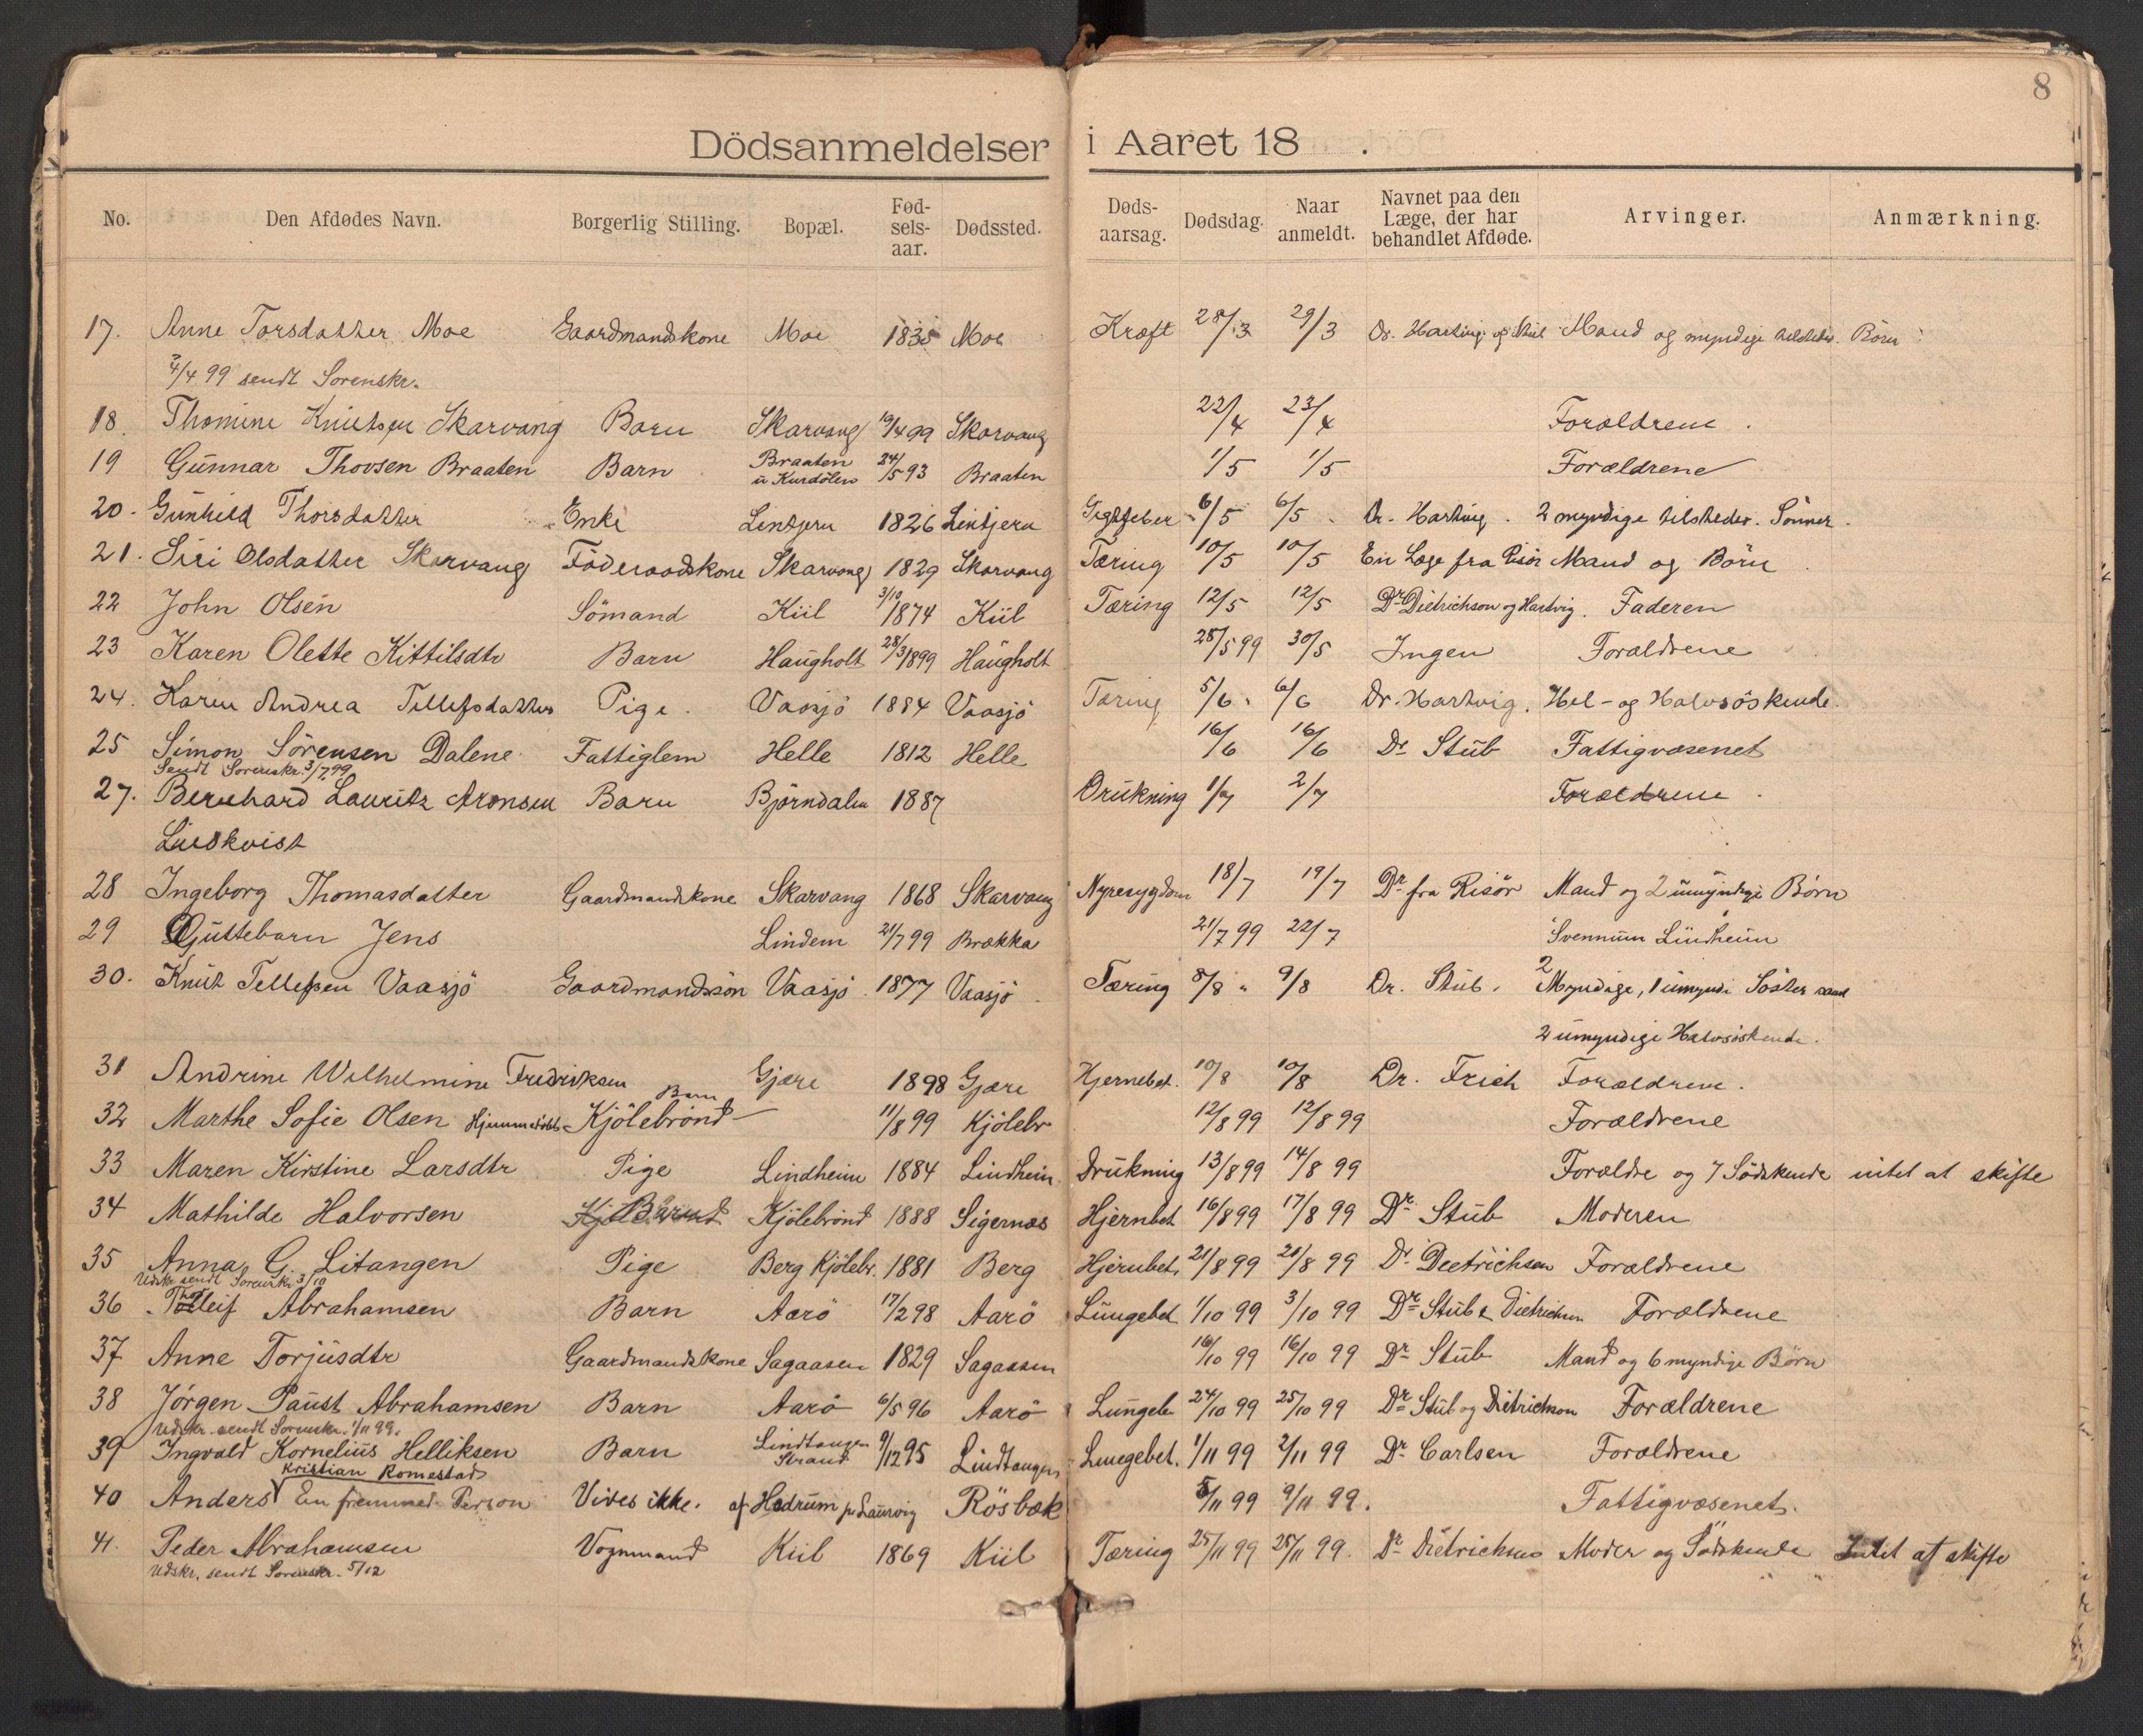 8
Dödsanmeldelser i Aaret 18 .
No. Den Afdødes Navn. Borgerlig Stilling. Bopæl. Fød-sels-aar. Dødssted. Døds-aarsag. Dødsdag. Naar anmeldt. Navnet paa den Læge, der har behandlet Afdøde. Arvinger. Anmærkning.
17. Anne Torsdatter Moe Gaardmandskone Moe 1835 Moe Kræft 28/3 29/3 Dr. Hartvig og Stub Mand og myndige tilstedev. Børn
4/4 99 sendt Sorenskr.
18. Thomine Knutsen Skarvang Barn Skarvang 19/4 99 Skarvang 22/4 23/4 Forældrene.
19 Gunnar Thovsen Braaten Barn Braaten u Kurdölen 24/5 93 Braaten 1/5 1/5 Forældrene
20. Gunhild Thorsdatter Enke Lintjern 1826 Lintjern Gigtfeber 6/5 6/5 Dr. Hartvig. 2 myndige tilstedev. Sönner.
21. Siri Olsdatter Skarvang Föderaadskone Skarvang 1829 Skarvang Tæring 10/5 10/5 En Læge fra Risör Mand og Börn
22 John Olsen Sömand Kiil 3/10 1874 Kiil Tæring 12/5 12/5 Dr Dietrichson og Hartvig. Faderen
23 Karen Olette Kittilsdtr Barn Haugholt 28/3 1899 Haugholt 28/5 99 30/5 Ingen Forældrene
24. Karen Andrea Tellefsdatter Pige. Vaasjö 1884 Vaasjö Tæring 5/6 6/6 Dr. Hartvig. Hel- og Halvsöskende.
25 Simon Sörensen Dalene Fattiglem Helle 1812 Helle 16/6 16/6 Dr Stub Fattigvæsenet
Sendt Sorenskr. 3/7 99
27. Bernhard Lauritz Aronsen Barn Björndalen 1887 Drukning 1/7 2/7 Forældrene.
Lindkvist
28 Ingeborg Thomasdatter Gaardmandskone Skarvang 1868 Skarvang Nyresygdom 18/7 19/7 Dr fra Risör Mand og 2 umyndige Börn
29 Guttebarn Jens Lindem 21/7 99 Brækka 21/7 99 22/7 Svennum Lindheim
30. Knut Tellefsen Vaasjö Gaardmandssön Vaasjö 1877 Vaasjö Tæring 8/8 " 9/8 Dr. Stub. 2 Myndige, 1 umyndi Söster samt
2 umyndige Halvsöskende.
31 Andrine Wilhelmine Fredriksen Barn Gjære 1898 Gjære Hjernebet. 10/8 10/8 Dr. Frich Forældrene.
32 Marthe Sofie Olsen Hjemmedöbt Kjölebrönd 11/8 99 Kjölebr 12/8 99 12/8 99 Forældrene
33 Maren Kirstine Larsdtr Pige Lindheim 1884 Lindheim Drukning 13/8 99 14/8 99 Forældre og 7 Södskende intet at skifte
34 Mathilde Halvorsen Barn Kjölebrönd 1888 Sigernæs Hjernbet 16/8 99 17/8 99 Dr Stub Moderen
35 Anna G. Litangen Pige Berg Kjölebr. 1881 Berg Hjernbet. 21/8 99 21/8 99 Dr Dietrichson Forældrene
Udskr sendt Sorenskr 3/10
36 Tholleif Abrahamsen Barn Aarö 17/2 98 Aarö Lungebet 1/10 99 3/10 99 Dr Stub & Dietrichson Forældrene
37 Anne Torjusdtr Gaardmandskone Sagaasen 1829 Sagaasen 16/10 99 16/10 99 Dr Stub Mand og 6 myndige Börn
38 Jörgen Paust Abrahamsen Barn Aarö 6/5 96 Aarö Lungeb 24/10 99 25/10 99 Dr Stub og Dietrichson Forældrene
Udskr. sendt Sorenskr. 1/11 99.
39 Ingvald Kornelius Helliksen Barn Lindtangen Strand 9/12 95 Lindtangen Lungebet. 1/11 99 2/11 99 Dr Carlsen Forældrene
Kristian Romestad
40 Anders En fremmed Person Vides ikke. af Hedrum pr Laurvig Rösbæk 5/11 99 9/11 99. Fattigvæsenet.
41. Peder Abrahamsen Vognmand Kiil 1869 Kiil Tæring 25/11 99 25/11 99. Dr Dietrichson Moder og Södskende Intet at skifte
Udskr. sendt Sorenskr. 5/12